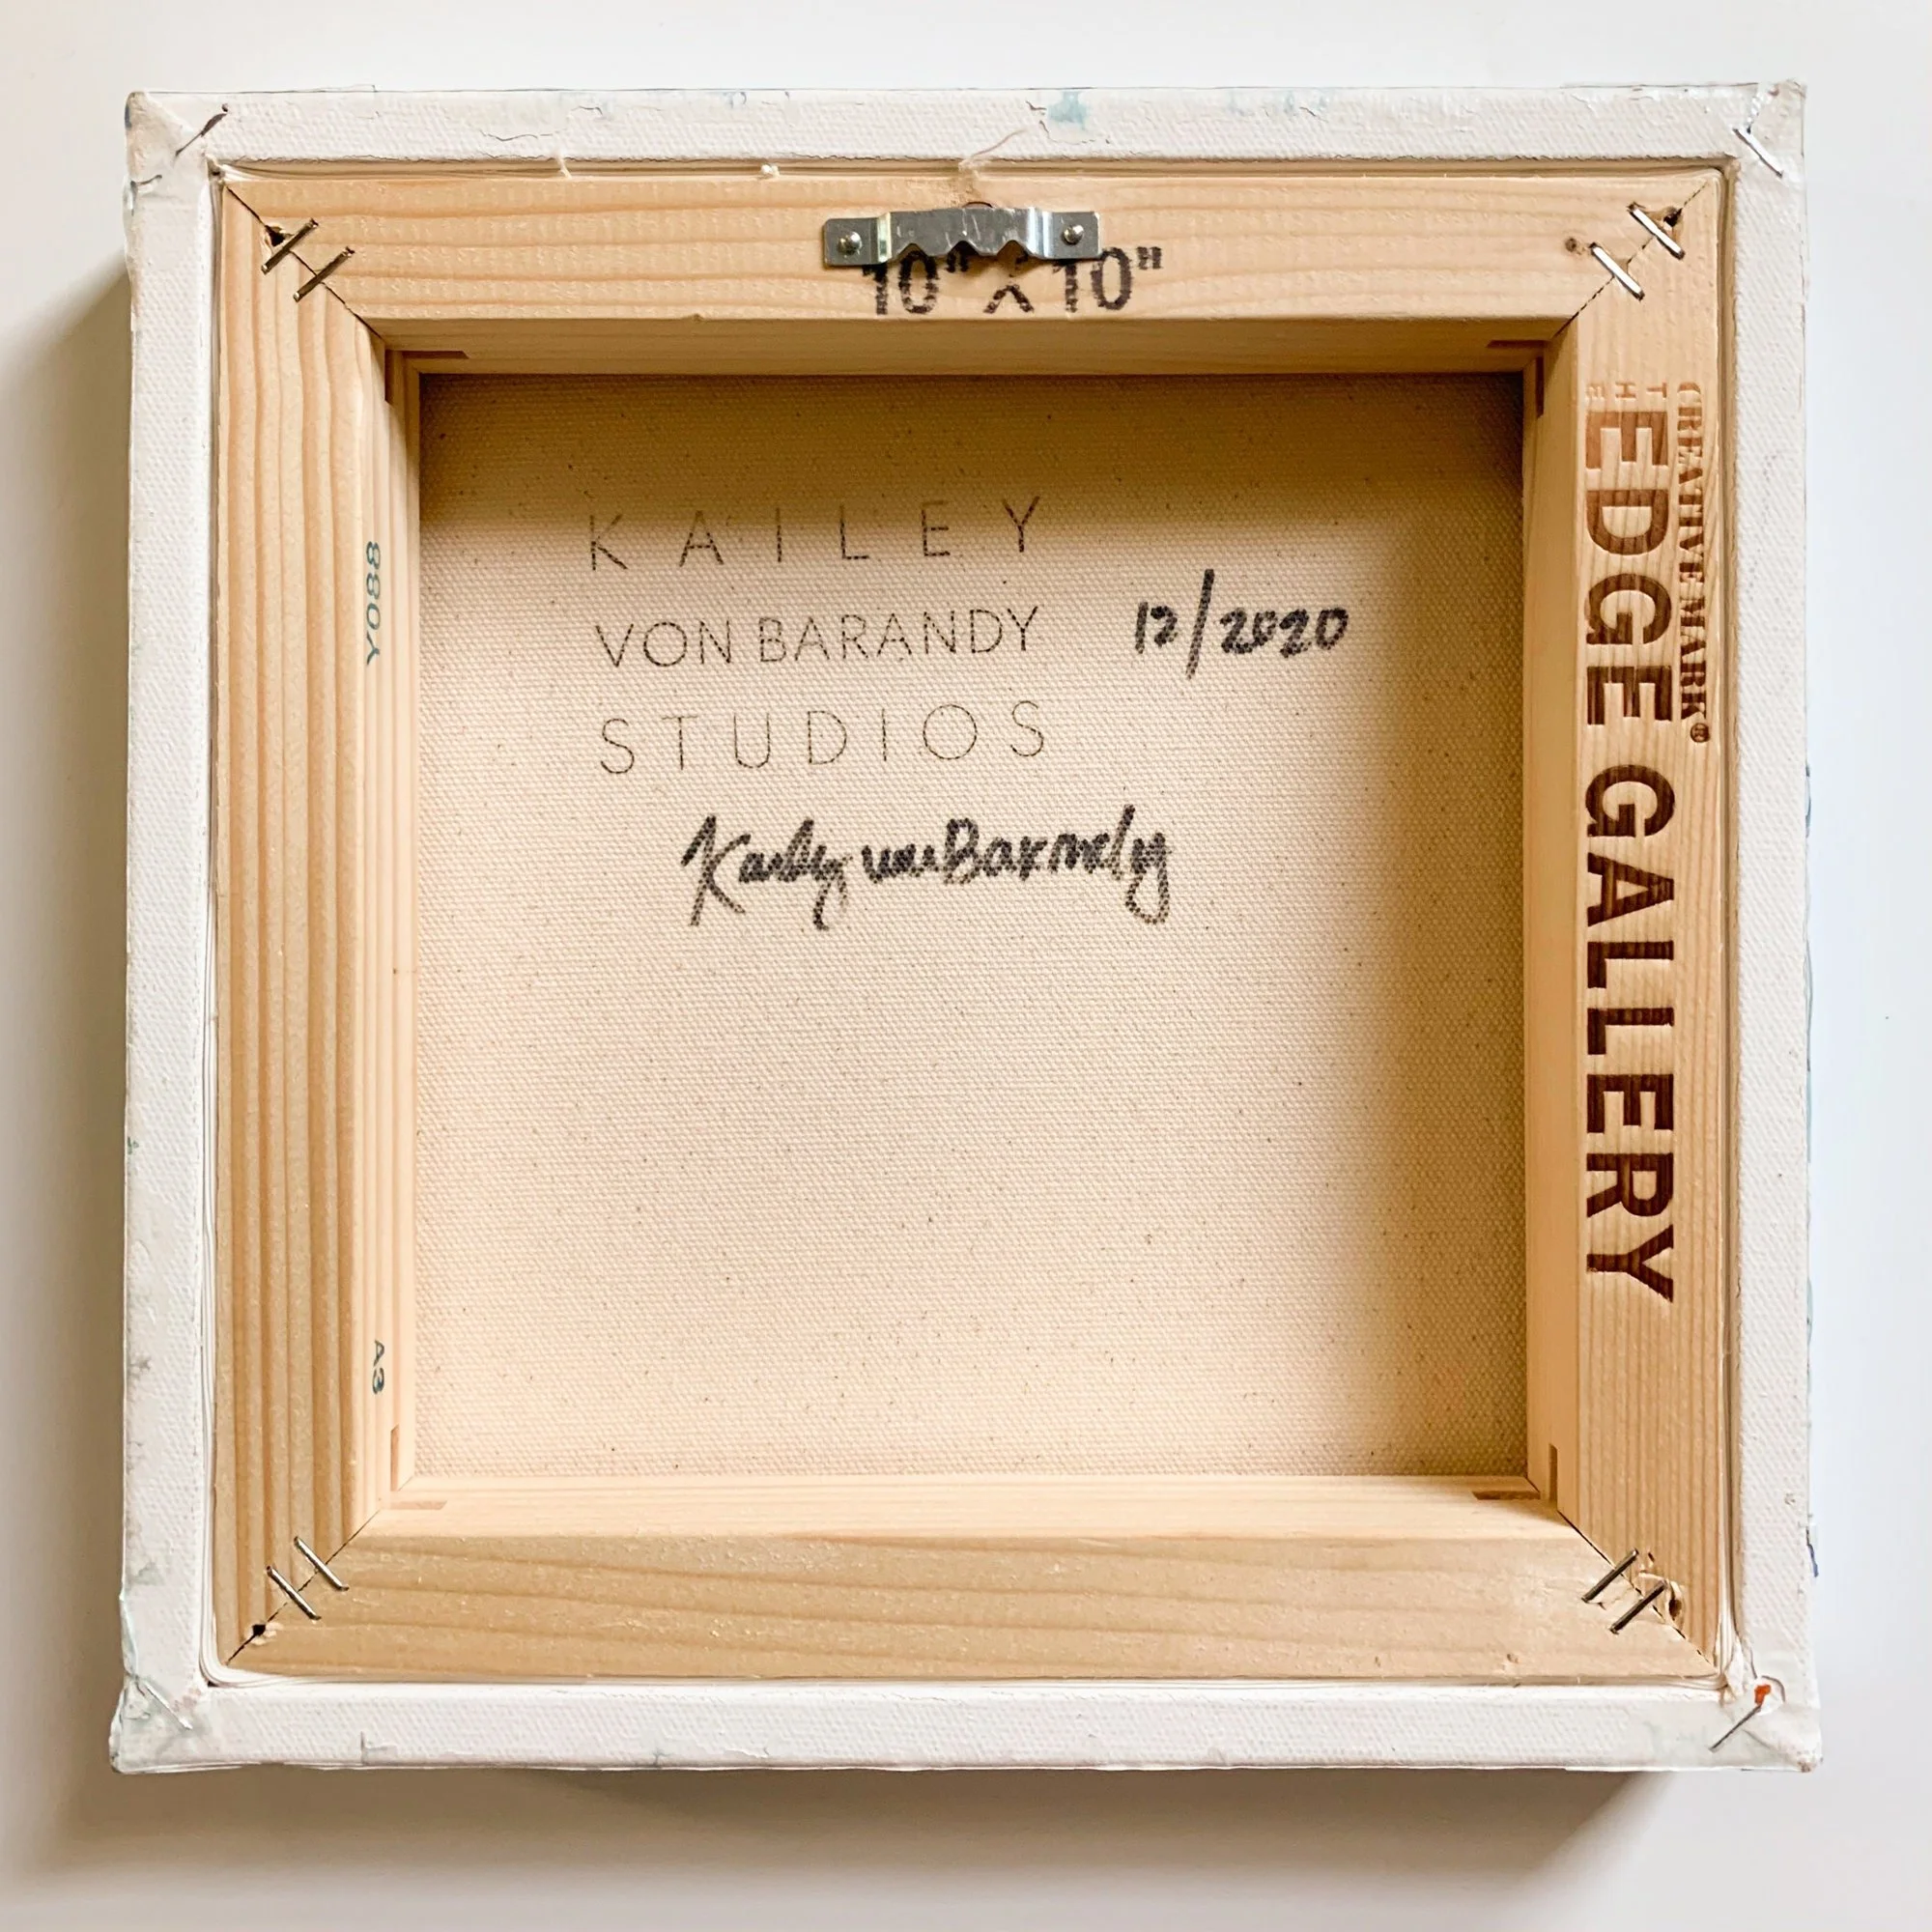 10" X 10"
KAILEY
VON BARANDY
STUDIOS
12/2020
Kailey von Barandy
CREATIVE MARK®
THE
EDGE GALLERY
Y088
A3